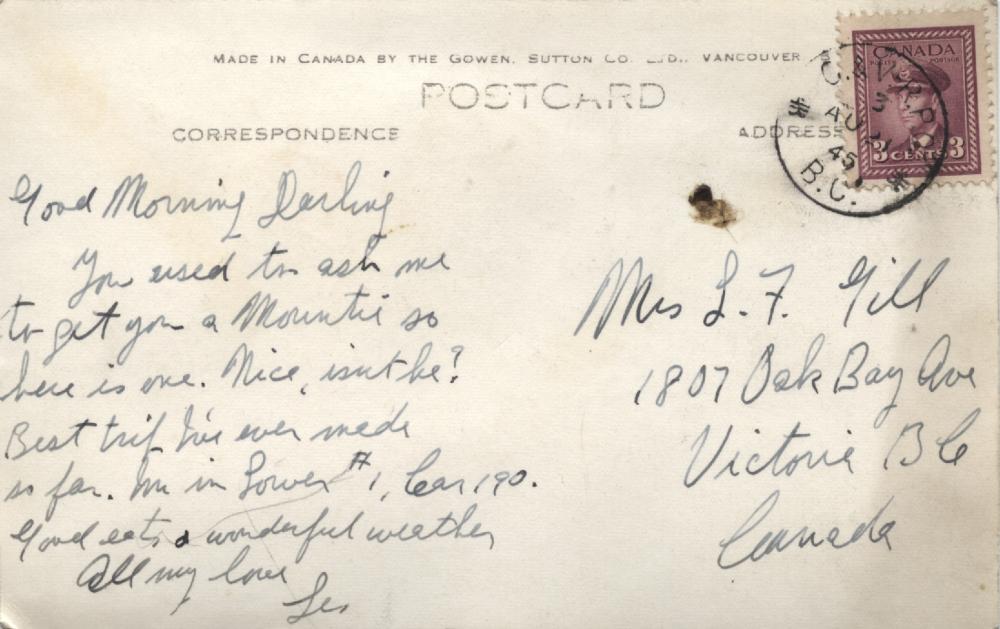 MADE IN CANADA BY THE GOWEN, SUTTON CO. LTD., VANCOUVER
POSTCARD
CORRESPONDENCE
ADDRESS
CANADA
POSTES POSTAGE
3 CENTS 3
3
AU 21
45
B.C.
Good Morning Darling
You used to ask me
to get you a Mountie so
here is one. Nice, isn't he?
Best trip I've ever made
so far. I'm in Lower #1, Car 190.
Good eats & wonderful weather
All my love
Les
Mrs L. F. Gill
1807 Oak Bay Ave
Victoria B C
Canada